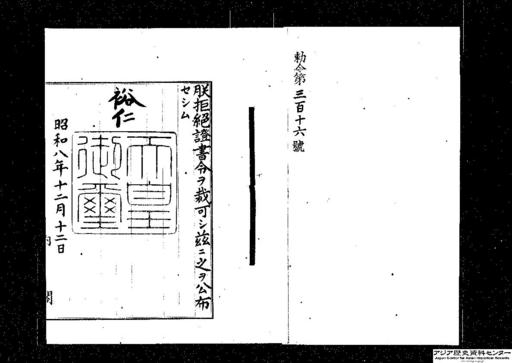 勅令第三百十六號
朕拒絕證書令ヲ裁可シ茲ニ之ヲ公布
セシム
裕仁
天皇御璽
昭和八年十二月十二日
内閣
アジア歴史資料センター
Japan Center for Asian Historical Records